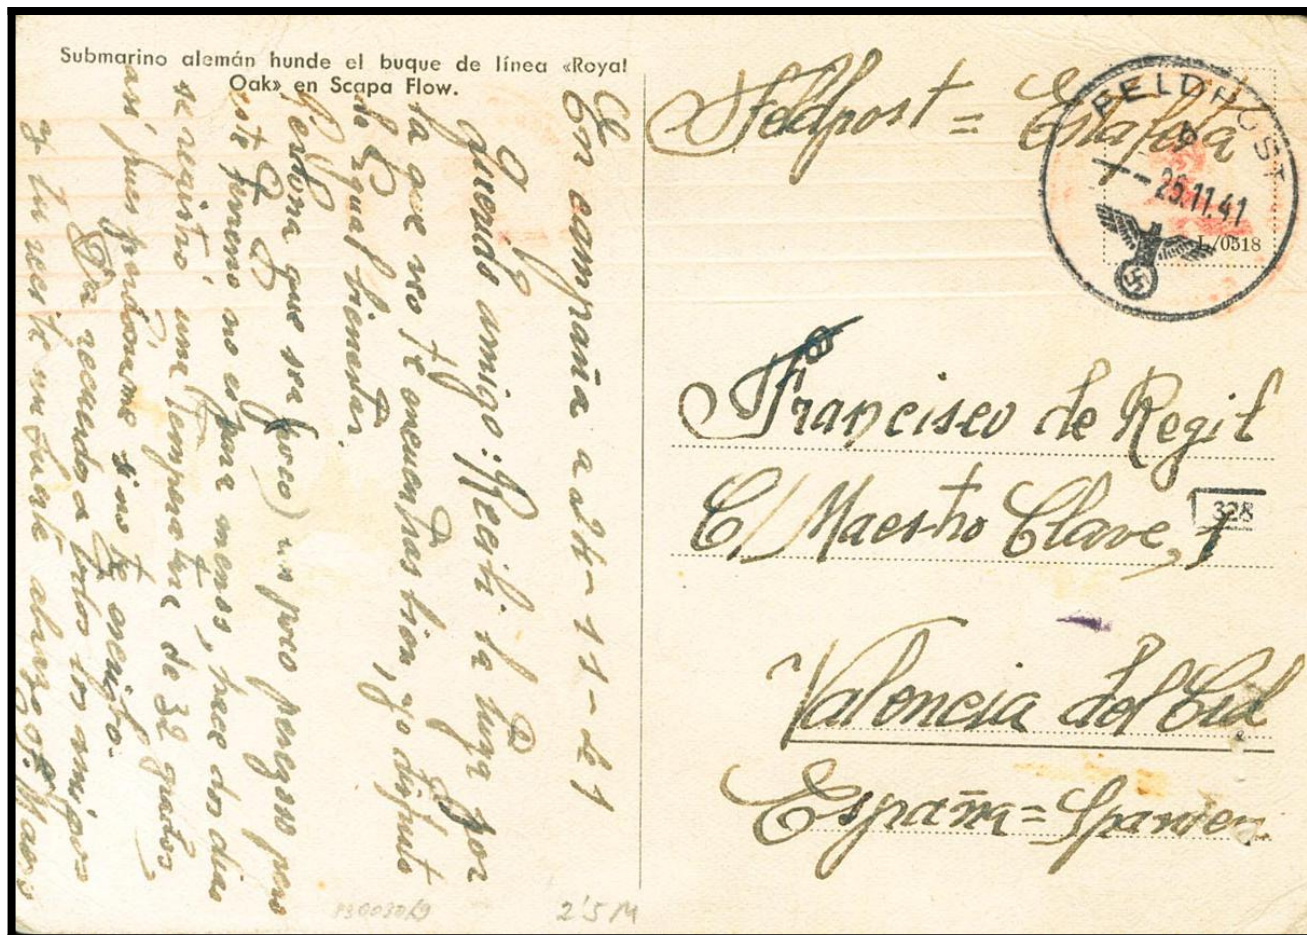 Submarino alemán hunde el buque de línea «Royal
Oak» en Scapa Flow.
En campaña a 24-11-41
Querido amigo: Recibi la tuya por
la que veo te encuentras bien, yo disfruto
de igual bienestar.
Perdona que sea poco) un poco perezoso pero
este no es para menos, hace dos dias
se registró una temperatura de 32 grados
asi pues perdoname si no te escribo.
Da recuerdos a todos los amigos
y tu recibe un fuerte abrazo
Feldpost = Estafeta
FELDPOST
25.11.41
L/0518
Francisco de Regil
C/ Maestro Clave, 1
328
Valencia del Cid
España = Spanien
2'5 M